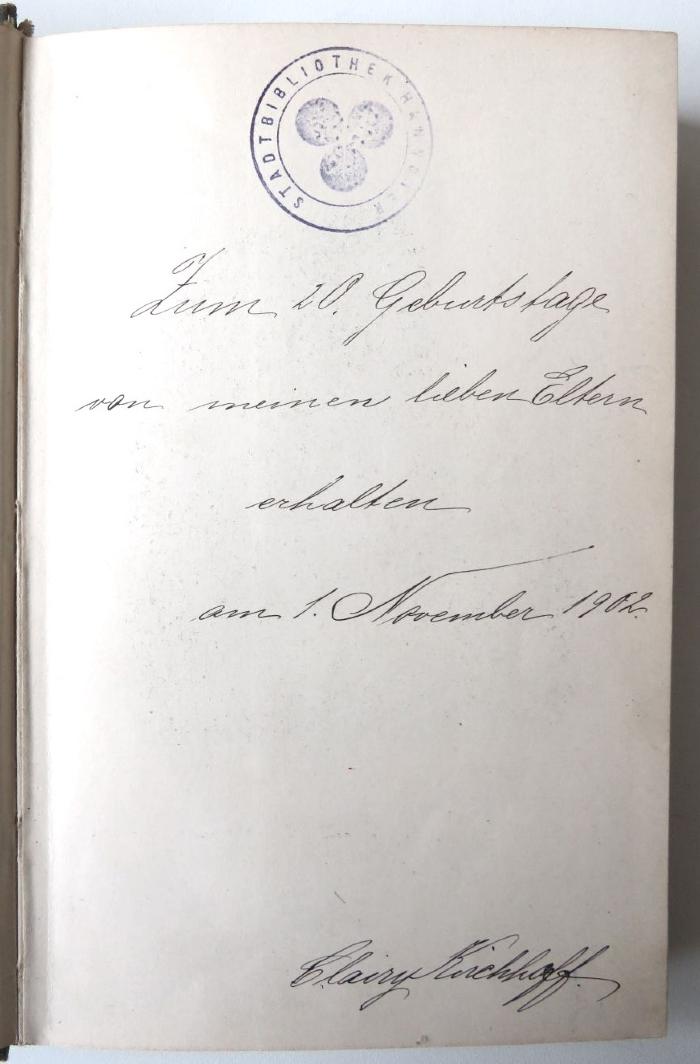 STADTBIBLIOTHEK HANNOVER
Zum 20. Geburtstage
von meinen lieben Eltern
erhalten
am 1. November 1902.
Clairy Kirchhoff.